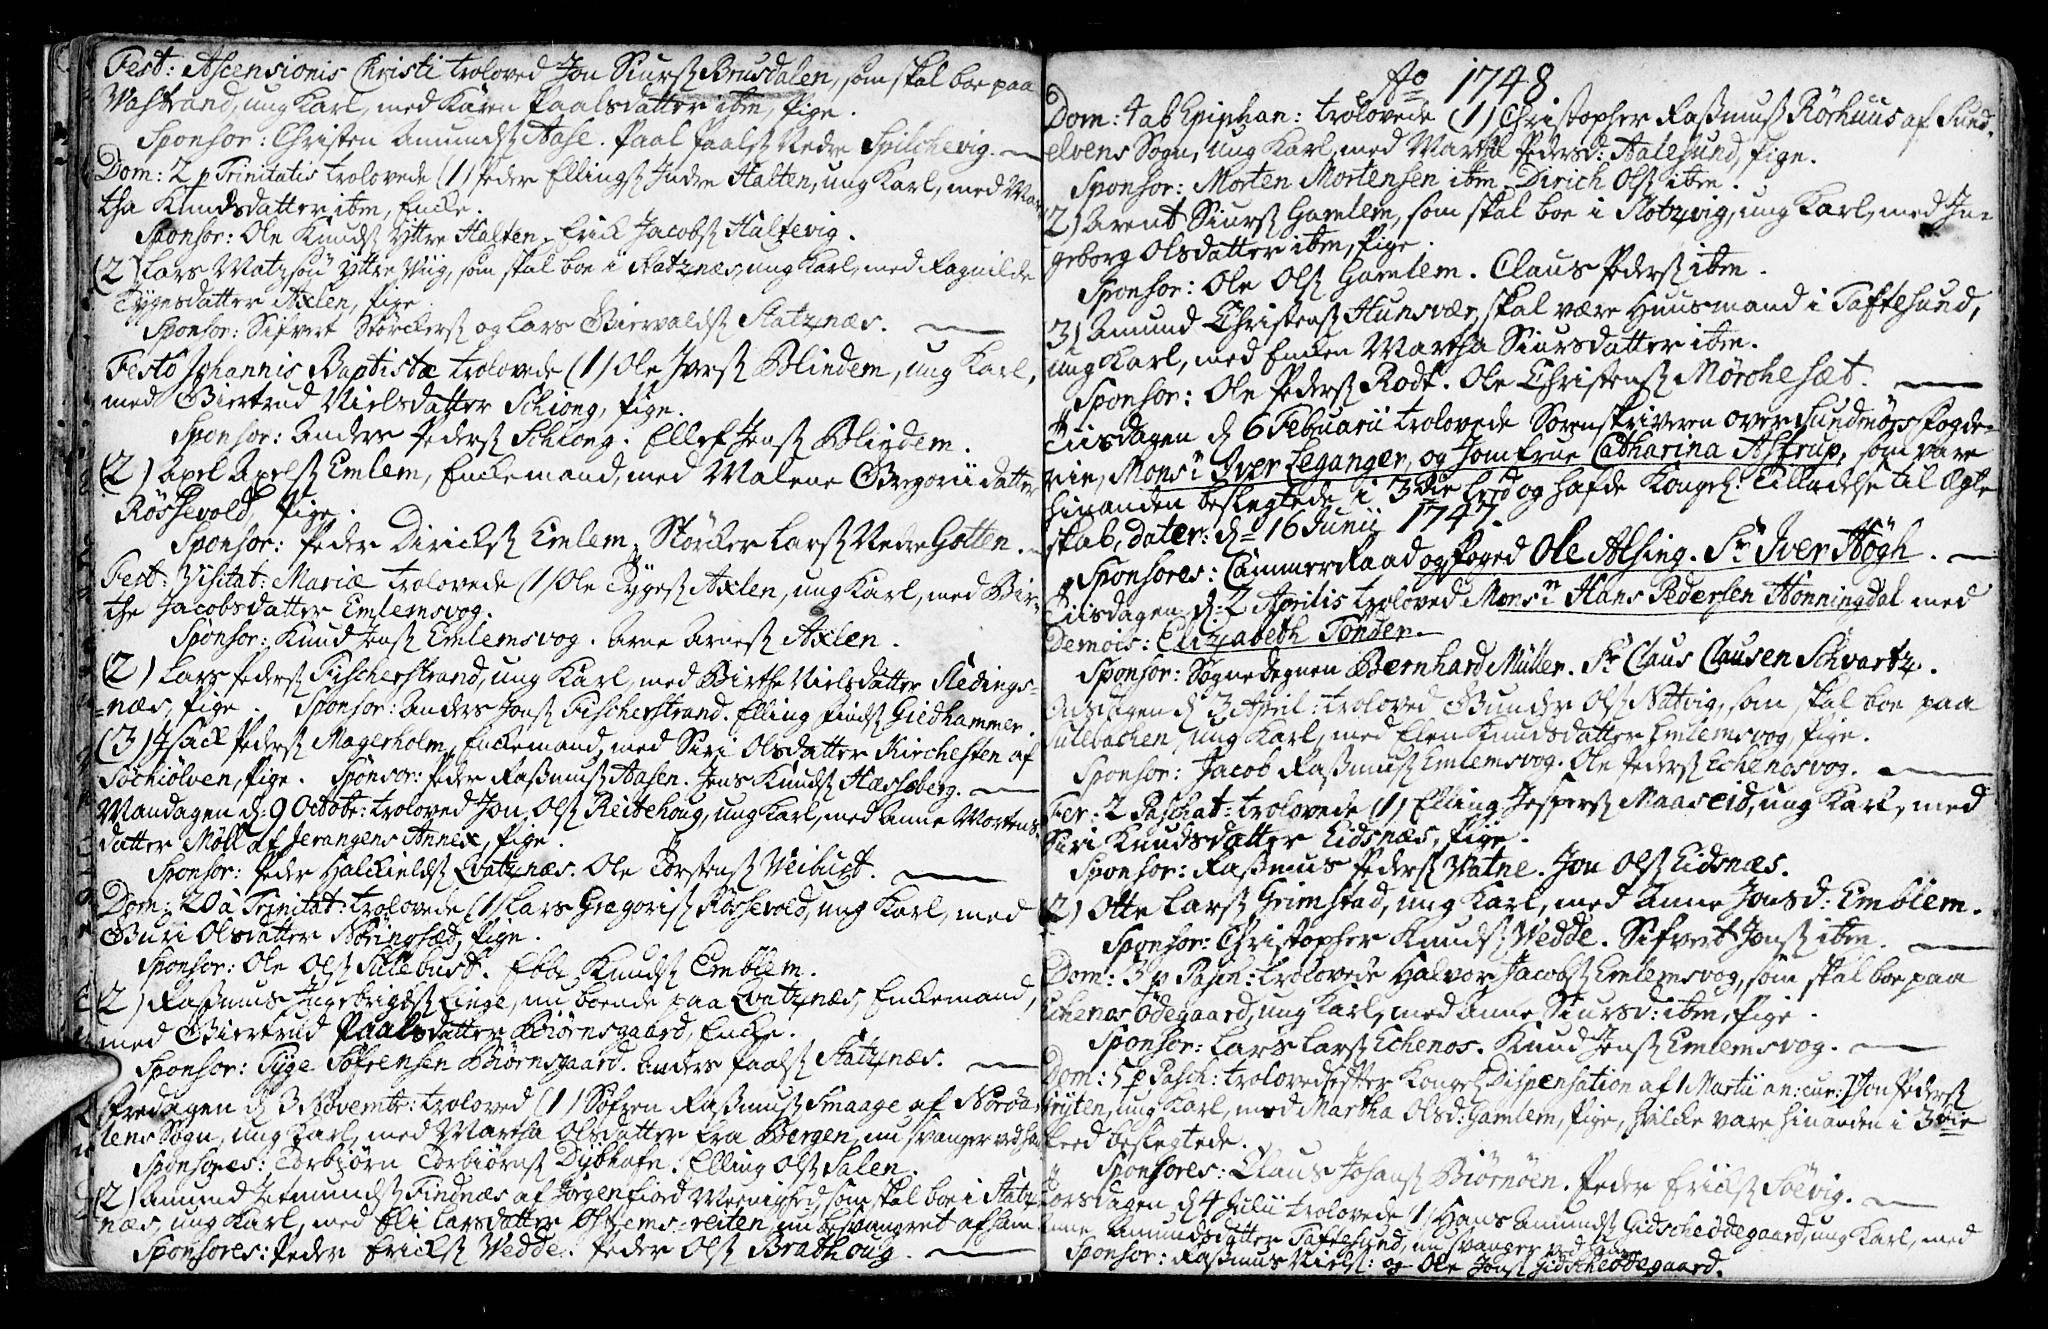 Fest: Ascensionis Christi troloved Jon Siurs: Brusdalen, som skal boe paa
Vastrand, ung Karl, med Karen Paalsdatter ibm, Pige.
Sponsor: Christen Amunds: Aase. Paal Paals: Nedre Spilchevig.
Dom: 2 p Trinitatis trolovede (1) Peder Ellings: Indre Halten, ung Karl, med Mar
tha Knudsdatter ibm, Encke.
Sponsor: Ole Knuds: Yttre Halten. Erick Jacobs: Haltevig.
(2) Lars Matzsøn Yttre Viig, som skal boe i Statznæs, ung Karl, med Ragnilde
Tygesdatter Axlen, Pige.
Sponsor: Sifvert Størckers: og Lars Biervalds: Statznæs.
Festo Johannis Baptistæ trolovede (1) Ole Ivers: Blindem, ung Karl,
med Giertrud Nielsdatter Schiong, Pige.
Sponsor: Anders Peders: Schiong. Ellef Jens: Blindem.
(2) Axel Axels: Emlem, Enckemand, med Malene Gregorii datter
Røssevold, Pige.
Sponsor: Peder Diricks: Emlem. Størcker Lars: Nedre Gotten.
Fest: Visitat: Mariæ trolovede (1) Ole Tyges: Axlen, ung Karl, med Bir-
the Jacobsdatter Emlemsvog.
Sponsor: Knud Jens: Emlemsvog. Arne Arnes: Axlen.
(2) Lars Peders: Fischerstrand, ung Karl, med Birthe Nielsdatter Fledings-
=næs, Pige. Sponsor: Anders Jons: Fischerstrand. Elling Finds: Giedhammer.
(3) Isack Peders: Magerholm, Enckemand, med Siri Olsdatter Kirchesten af
Søchiølven, Pige. Sponsor: Peder Rasmus: Aasen. Jens Knuds: Hæssberg.
Mandagen d: 9 Octobr: troloved Jon Ols: Reitehoug, ung Karl, med Anne Mortens
datter Møll af Jerangens Annex, Pige.
Sponsor: Peder Halckields: Qvatznæs. Ole Torstens: Veibust.
Dom: 20 à Trinitat: trolovede (1) Lars Gregoris: Røssevold, ung Karl, med
Guri Olsdatter Nøringsæd, Pige.
Sponsor: Ole Ols: Sulebust. Ebbe Knuds: Emblem.
(2) Rasmus Ingebrigds: Linge, nu boende paa Qvatznæs, Enckemand,
med Giertrud Paalsdatter Biørnsgaard, Encke.
Sponsor: Tyge Søfrensen Biørnsgaard. Anders Paals: Statznæs.
Fredagen d: 3 Novembr: troloved (1) Søfren Rasmus: Smaage af Norda
lens Sogn, ung Karl, med Martha Olsdatter fra Bergen, nu svanger ved ham
Sponsores: Torbjørn Torbiørns: Dybhafn. Elling Ols: Salen.
(2) Amund Jetmunds: Findnæs af Jørgenfiord Menighed, som skal boe i Statz
næs, ung Karl, med Eli Larsdatter Østrems-reiten, nu besvangret af ham.
Sponsores: Peder Ericks: Vedde. Peder Ols: Brathoug.
Ao 1748
Dom: 4 ab Epiphan: trolovede (1) Christopher Rasmus: Rørhuus af Sund-
elvens Sogn, ung Karl, med Martha Pedersd: Aalesund, Pige.
Sponsor: Morten Mortensen ibm. Dirich Ols: ibm.
2) Arent Siurs: Gamlem, som skal boe i Slotzvig, ung Karl, med In-
geborg Olsdatter ibm, Pige.
Sponsor: Ole Ols: Gamlem. Claus Peders: ibm.
3) Amund Christens: Hunsvær, skal være Huusmand i Taftesund,
ung Karl, med Encken Martha Siursdatter ibm.
Sponsor: Ole Peders: Rodt. Ole Christens: Mørchesæt.
Tiisdagen d: 6 Februarii trolovede Sorenskriveren over Sundmørs Fogde-
rie, Monsr Iver Leganger, og Jomfrue Catharina Astrup, som vare
hinanden beslegtede i 3die Leed og hafde Kongel: Tilladelse til Ægte
skab, dater: d: 16 Junii 1747.
Sponsores: Cammerraad og Foged Ole Alsing. Sr Iver Høgh.
Tiisdagen d: 2 Aprilis troloved Monsr Hans Pedersen Hønningdal med
Demois: Elizabeth Tønder.
Sponsor: Sognedegnen Bernhard Müller. Sr Claus Clausen Schvartz.
Onsdagen d: 3 April: troloved Gunder Ols: Natvig, som skal boe paa
Sulebachen, ung Karl, med Elen Knudsdatter Emlemsvog, Pige.
Sponsor: Jacob Rasmus: Emlemsvog. Ole Peders: Echenosvog.
Fer: 2 Paschat: trolovede (1) Elling Jespers: Maaseid, ung Karl, med
Siri Knudsdatter Eidsnæs, Pige.
Sponsor: Rasmus Peders: Vatne. Jon Ols: Eidsnæs.
2) Otte Lars: Grimstad, ung Karl, med Anne Jonsd: Emblem.
Sponsor: Christopher Knuds: Vedde. Sifvert Jons: ibm.
Dom: 3 p Pasch: trolovede Halvor Jacobs: Emlemsvog, som skal boe paa
Echenos Ødegaard, ung Karl, med Anne Siursd: ibm, Pige.
Sponsor: Lars Lars: Echenos. Knud Jens: Emlemsvog.
Dom: 5 p Pasch: trolovedes efter Kongel: Dispensation af 1 Martii an: cur: Jon Peders:
ung Karl, med Martha Olsd: Gamlem, Pige, hvilcke vare hinanden i 3die
Leed beslegtede.
Sponsores: Claus Johans: Biørnøen. Peder Ericks: Søevig.
Torsdagen d: 4 Julii trolovede (1) Hans Amunds: Gidscheødegaard, ung Karl, med
Anne Amundsdatter Taftesund, nu svanger ved ham.
Sponsor: Rasmus Niels: og Ole Jons: Gidscheødegaard.